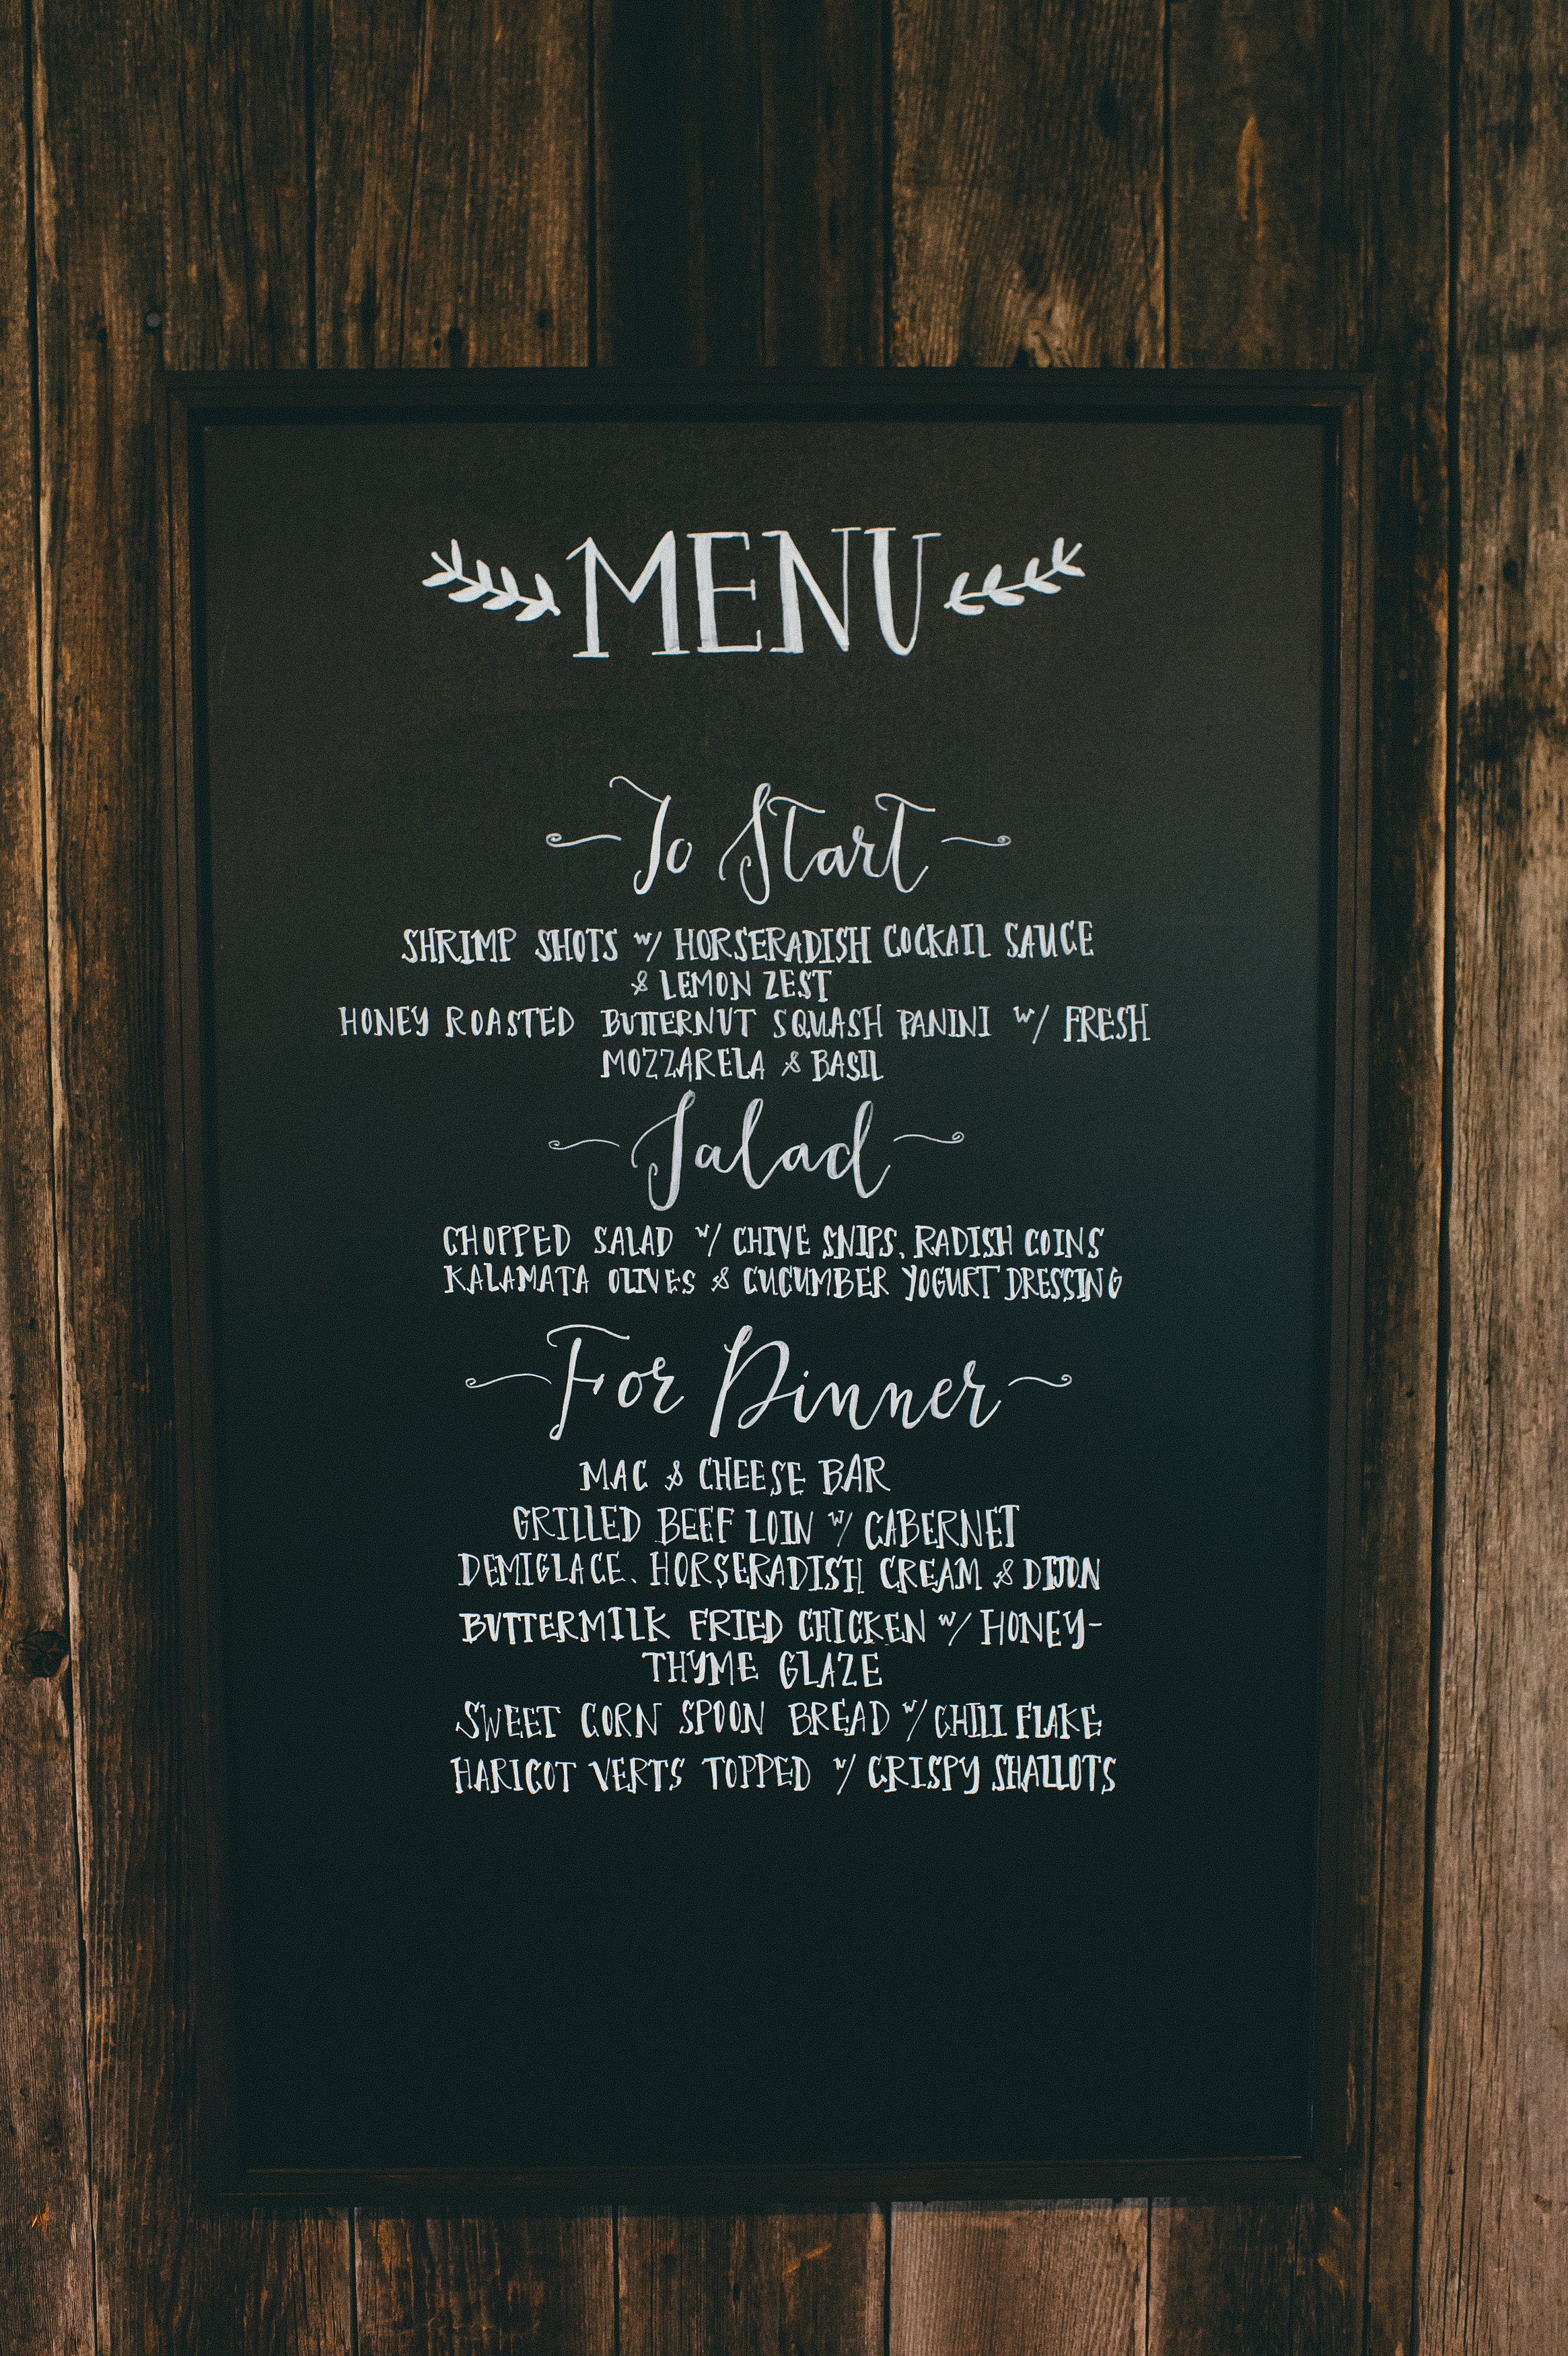 MENU
To Start
SHRIMP SHOTS w/ HORSERADISH COCKAIL SAUCE
& LEMON ZEST
HONEY ROASTED BUTTERNUT SQUASH PANINI w/ FRESH
MOZZARELA & BASIL
Salad
CHOPPED SALAD w/ CHIVE SNIPS, RADISH COINS
KALAMATA OLIVES & CUCUMBER YOGURT DRESSING
For Dinner
MAC & CHEESE BAR
GRILLED BEEF LOIN w/ CABERNET
DEMIGLACE, HORSERADISH CREAM & DIJON
BUTTERMILK FRIED CHICKEN w/ HONEY-
THYME GLAZE
SWEET CORN SPOON BREAD w/ CHILI FLAKE
HARICOT VERTS TOPPED w/ CRISPY SHALLOTS